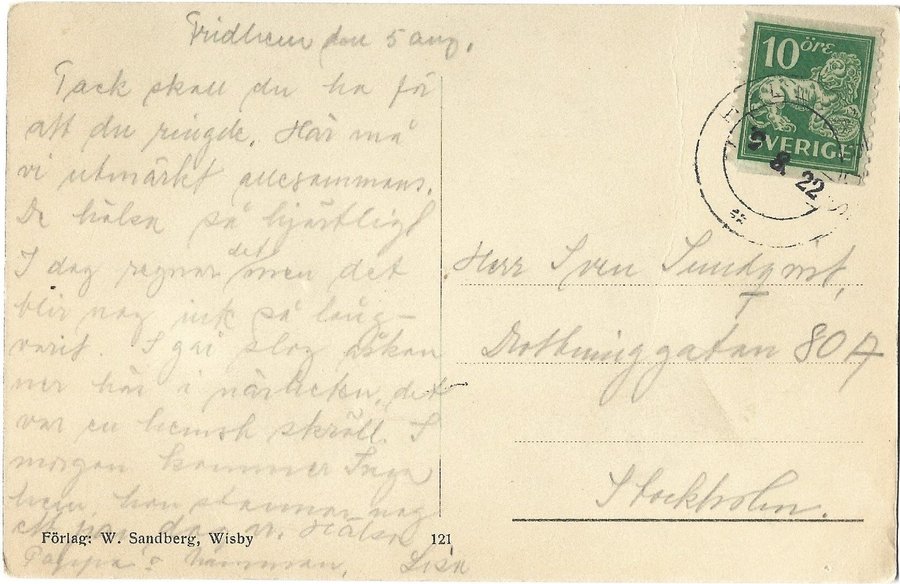 Fridhem den 5 aug.
Tack skall du ha för
att du ringde. Här må
vi utmärkt allesammans.
De hälsa så hjärtligt
I dag regnar det men det
blir nog inte så lång-
varit. I går slog åskan
ner här i närheten, det
var en hemsk skräll. I
morgon kommer Inga
hem, hon stannar nog
ett par dagar. Hälsa
Pappa o Mamman. Lisa
Förlag: W. Sandberg, Wisby
121
10 öre
SVERIGE
8. 22
Herr Sven Sundqvist,
Drottninggatan 80 A
Stockholm.